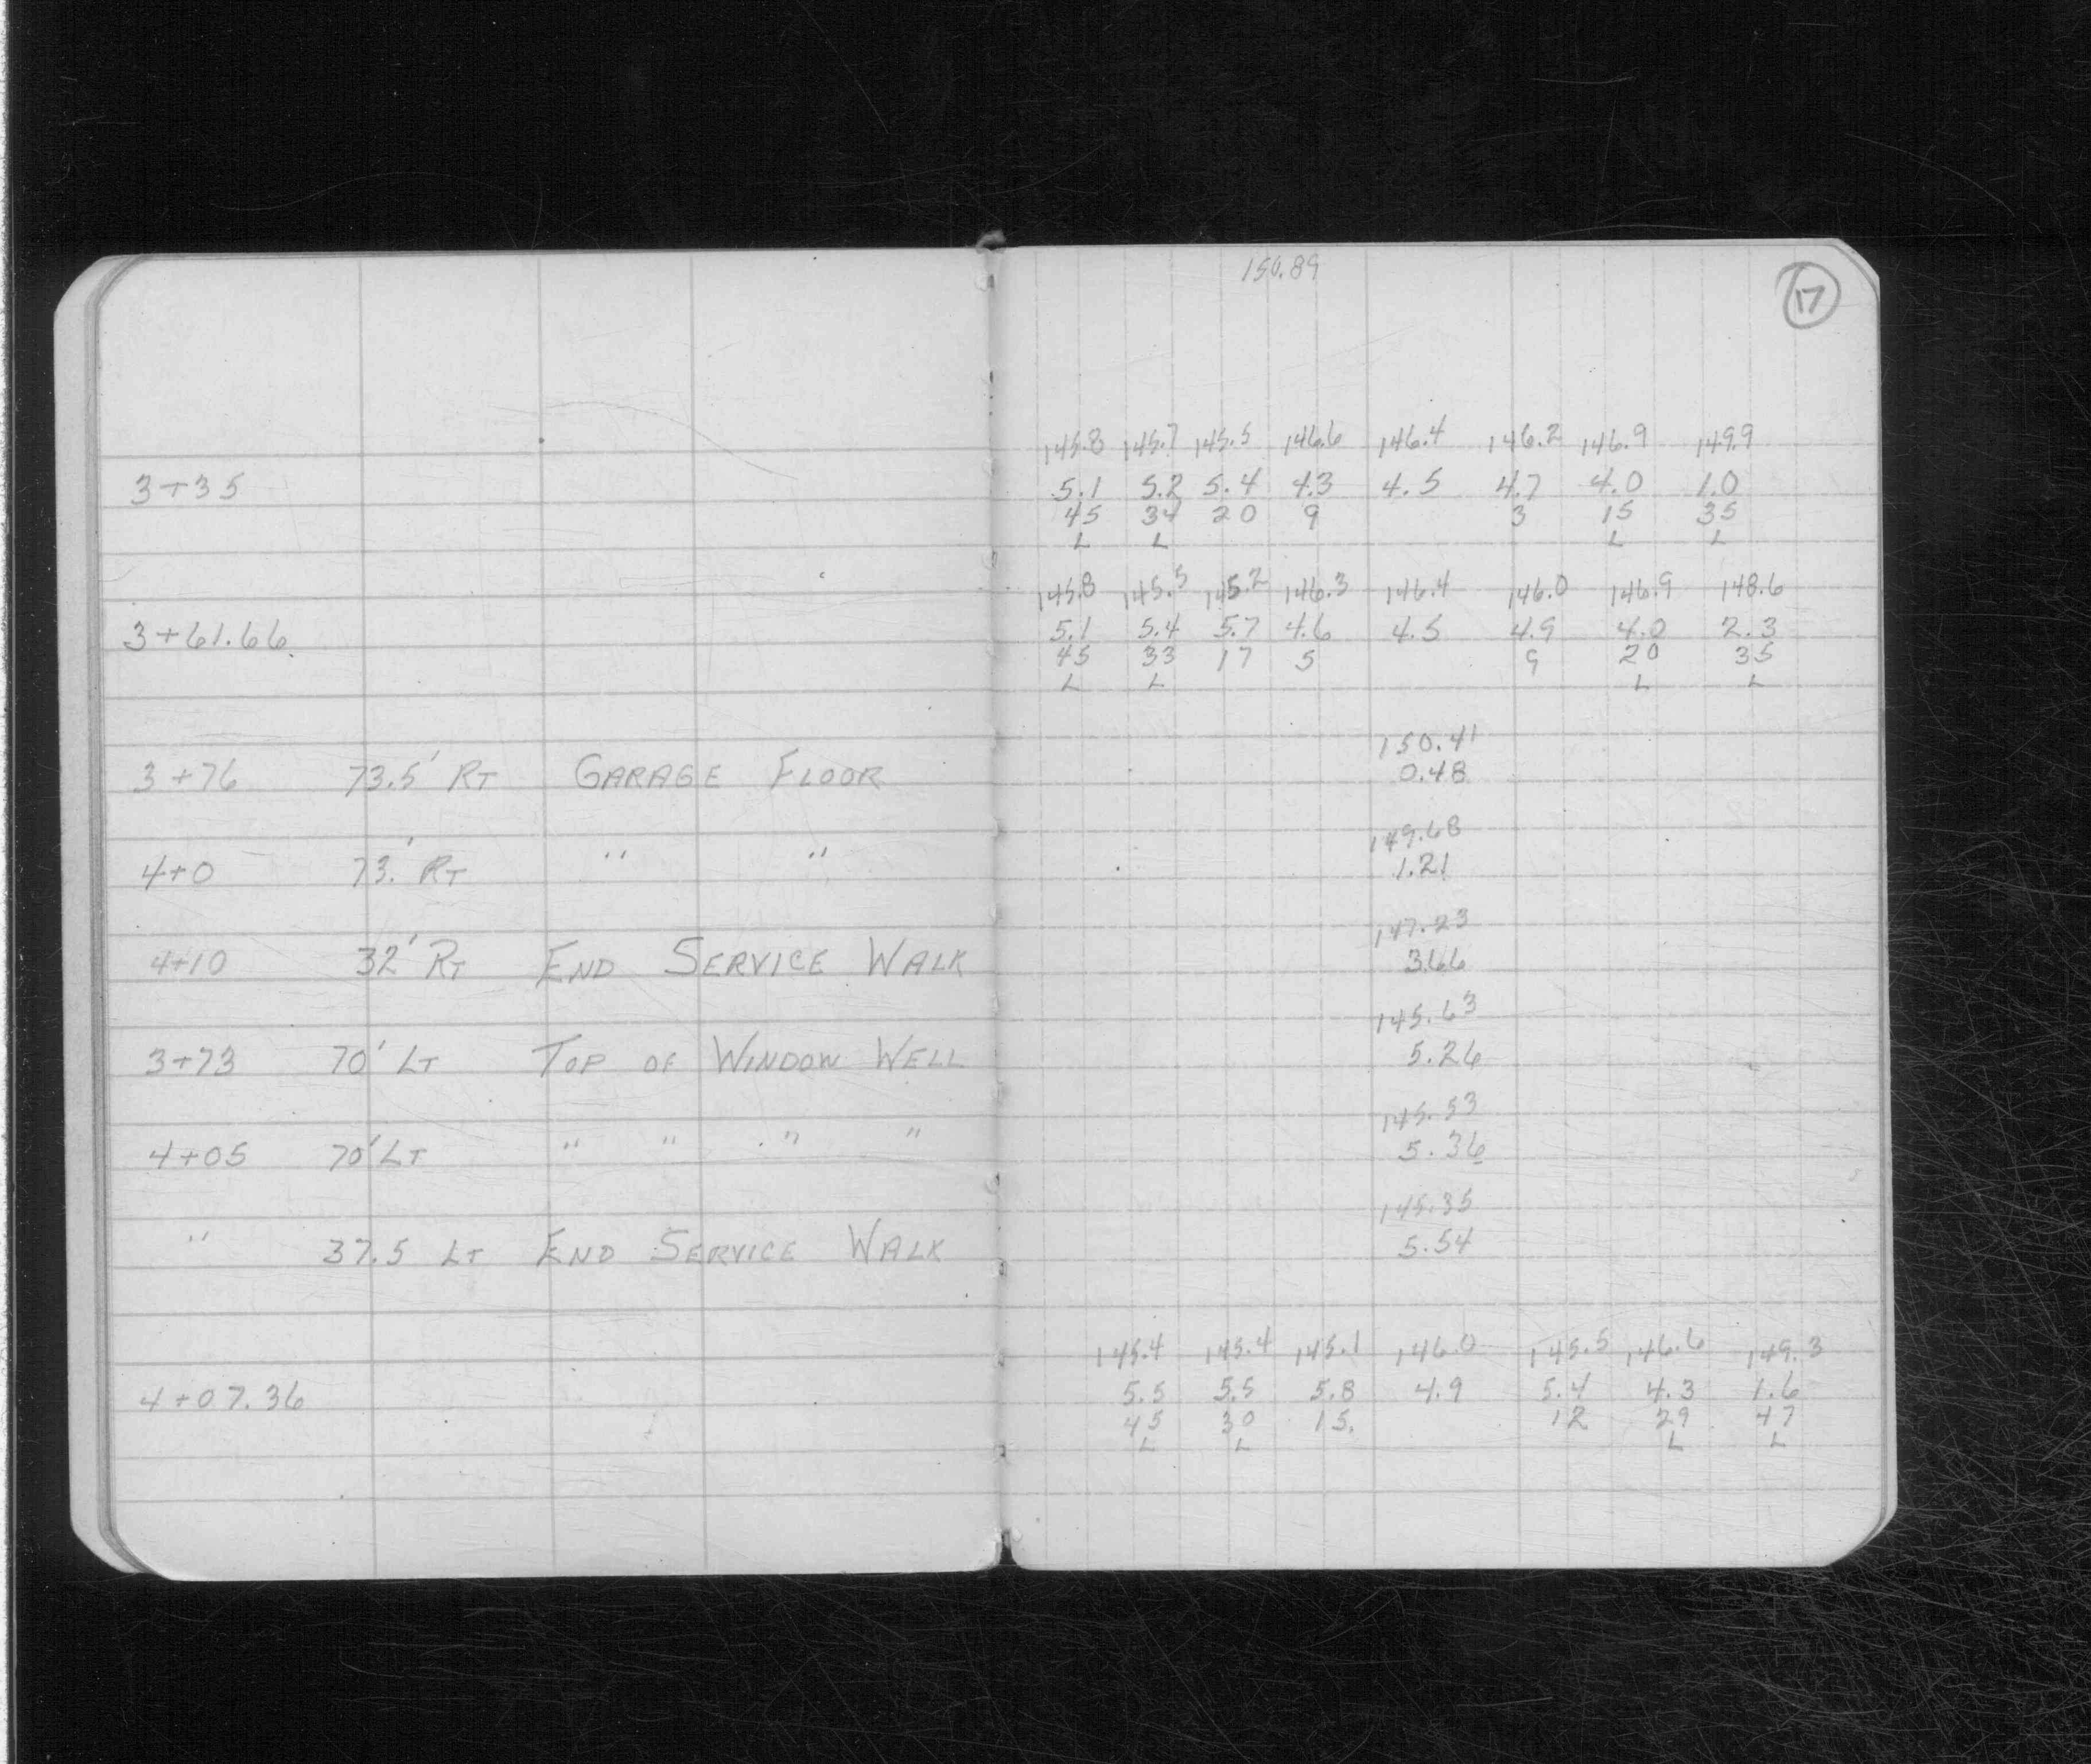 150.89
17
145.8 145.7 145.5 146.6 146.4 146.2 146.9 149.9
3+35 5.1 5.2 5.4 4.3 4.5 4.7 4.0 1.0
45 34 20 9 3 15 35
L L L L
145.8 145.5 145.2 146.3 146.4 146.0 146.9 148.6
3+61.66. 5.1 5.4 5.7 4.6 4.5 4.9 4.0 2.3
45 33 17 5 9 20 35
L L L L
150.41
3+76 73.5' RT GARAGE FLOOR 0.48
149.68
4+0 73.' RT " " 1.21
147.23
4+10 32' RT END SERVICE WALK 3.66
145.63
3+73 70' LT TOP OF WINDOW WELL 5.26
145.53
4+05 70' LT " " " " 5.36
145.35
" 37.5 LT END SERVICE WALK 5.54
145.4 145.4 145.1 146.0 145.5 146.6 149.3
4+07.36 5.5 5.5 5.8 4.9 5.4 4.3 1.6
45 30 15. 12 29 47
L L L L